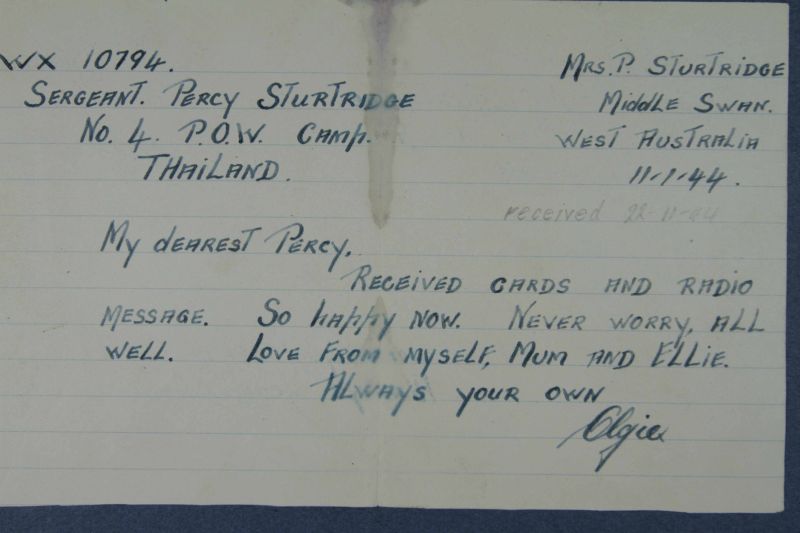 WX 10794.
SERGEANT. PERCY STURTRIDGE
No. 4. P.O.W. CAMP.
THAILAND.
MRS. P. STURTRIDGE
MIDDLE SWAN.
WEST AUSTRALIA
11-1-44.
received 22-11-44
MY DEAREST PERCY,
RECEIVED CARDS AND RADIO
MESSAGE. SO HAPPY NOW. NEVER WORRY, ALL
WELL. LOVE FROM MYSELF, MUM AND ELLIE.
ALWAYS YOUR OWN
Olgie